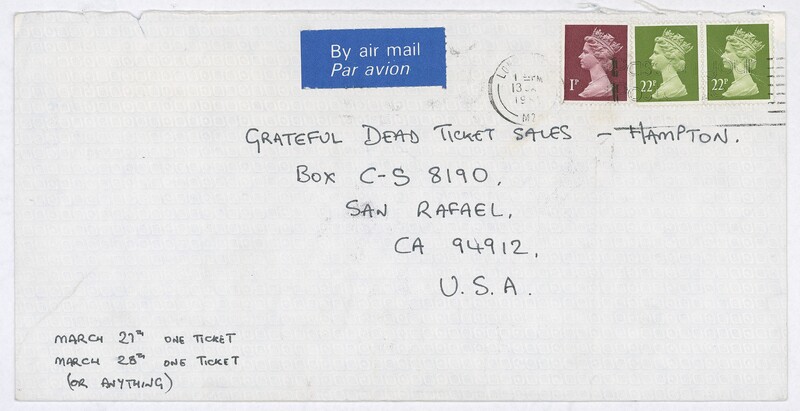 By air mail
Par avion
1P
22P
22P
13
19
M2
GRATEFUL DEAD TICKET SALES – HAMPTON.
BOX C-S 8190,
SAN RAFAEL,
CA 94912,
U.S.A.
MARCH 27TH ONE TICKET
MARCH 28TH ONE TICKET
(OR ANYTHING)